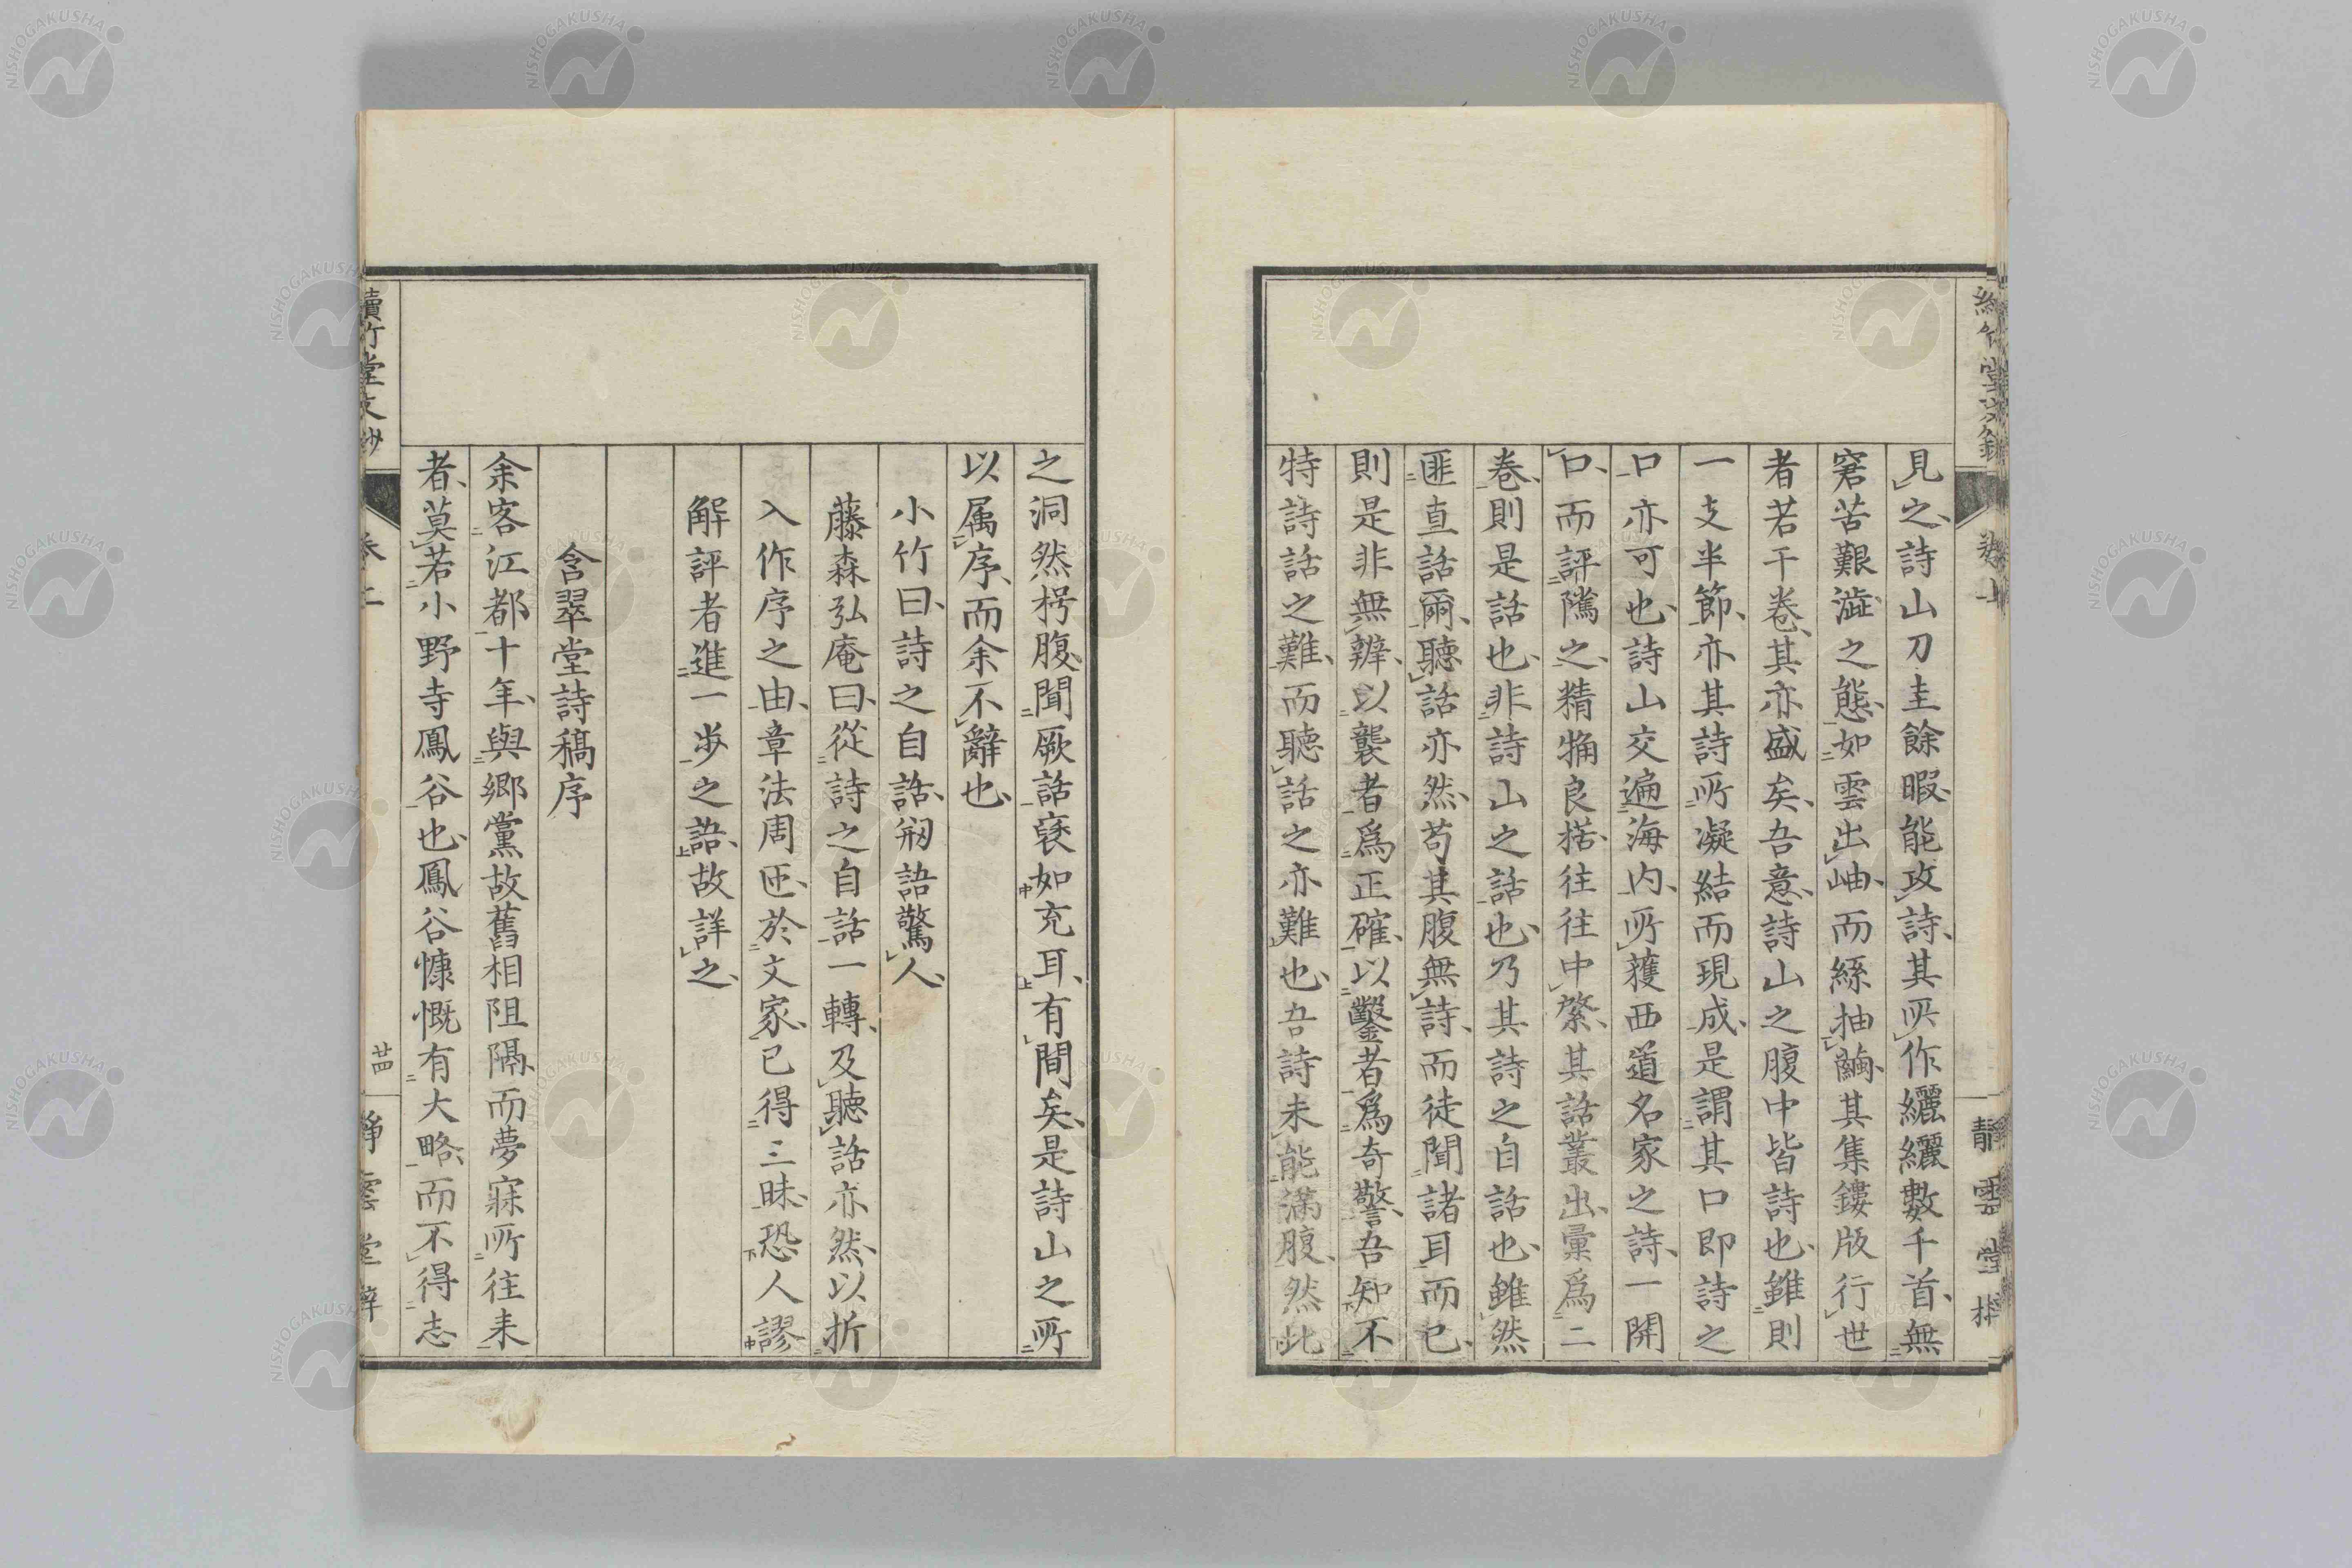 見之、詩山刀圭餘暇、能攻詩、其所作纚纚數千首、無
窘苦艱澁之態、如雲出岫、而絲抽繭、其集鏤版行世
者若干卷、其亦盛矣、吾意、詩山之腹中皆詩也、雖則
一支半節、亦其詩所凝結而現成、是謂其口即詩之
口亦可也、詩山交遍海内、所獲西道名家之詩、一開
口、而評隲之、精粗良楛、往往中綮、其話叢出、彙爲二
卷、則是話也、非詩山之話也、乃其詩之自話也、雖然
匪直話爾、聽話亦然、苟其腹無詩、而徒聞諸耳而已、
則是非無辨、以襲者爲正確、以鑿者爲奇警、吾知不
特詩話之難、而聽話之亦難也、吾詩未能滿腹、然此
之洞然枵腹、聞厥話褎如充耳、有間矣、是詩山之所
以属序、而余不辭也、
小竹曰、詩之自話、刱語驚人、
藤森弘庵曰、從詩之自話一轉、及聽話亦然、以折
入作序之由、章法周匝、於文家、已得三昧、恐人謬
解評者進一步之語、故詳之、
含翠堂詩稿序
余客江都十年、與郷黨故舊相阻隔、而夢寐所往来
者、莫若小野寺鳳谷也、鳳谷慷慨有大略、而不得志
續竹堂文鈔
卷二
廿四
靜雲堂梓